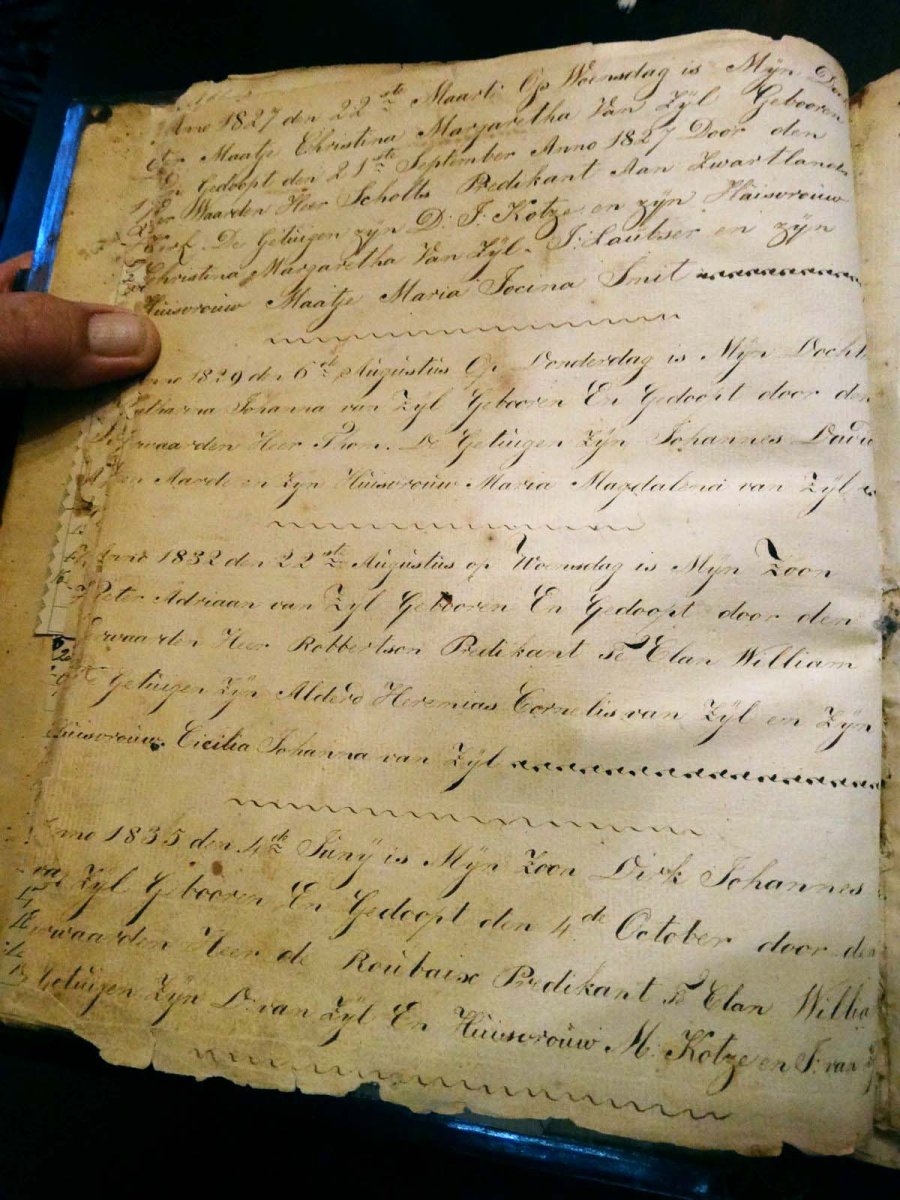 Anno 1827 den 22 ste Maart Op Woensdag is Mÿn
Maatje Christina Margaretha Van Zÿl Gebooren
Gedoopt den 21 ste September Anno 1827 Door den
Waarden Heer Scholts Predikant Aan Zwartlands
Kerk De Getuigen zyn D: J: Kotze en zÿn Huisvrouw
Christina Margaretha Van Zÿl. J: Laubser en zÿn
Huisvrouw Maatje Maria Jocina Smit
Anno 1829 den 6 de Augustus Op Donderdag is Mÿn Docht
Johanna van Zÿl Gebooren En Gedoopt door den
Eerwaarden Heer Thom. De Getuigen Zÿn Johannes
Aarde en Zyn Huisvrouw Maria Magdalena van Zÿl
Anno 1832 den 22 ste Augustus op Woensdag is Mÿn Zoon
Peter Adriaan van Zÿl Gebooren En Gedoopt door den
Eerwaarden Heer Robbertson Predikant Te Clan William
De Getuigen Zÿn Aldero Heremias Cornelis van Zÿl en Zÿn
Huisvrouw. Cicilia Johanna van Zÿl
Anno 1835 den 4 de Junÿ is Mÿn Zoon Dirk Johannes
van Zÿl Gebooren En Gedoopt den 4 de October door den
Eerwaarden Heer de Roubaix Predikant Te Clan Willia
Getuigen Zÿn D: van Zÿl En Huisvrouw M: Kotze en J: van